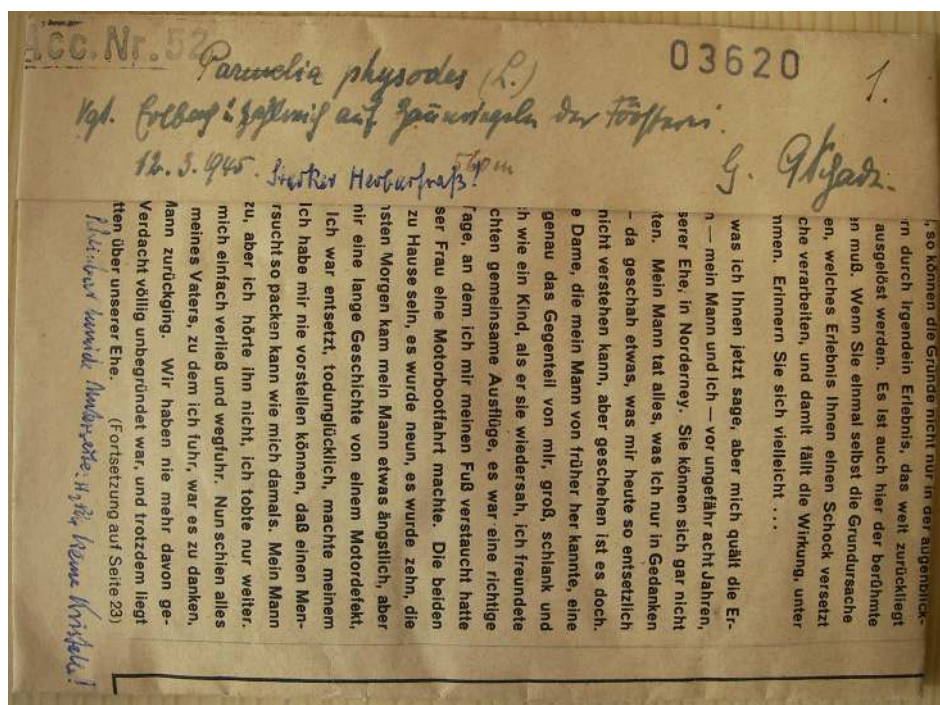 Acc. Nr. 52
03620
1.
Parmelia physodes (L.)
Vgt. Erlbach: zahlreich auf Zaunriegeln der Försterei.
12. 3. 1945. Starker Herbarfraß!
560 m
G.
, so können die Gründe nicht nur in der augenblick-
rn durch irgendein Erlebnis, das weit zurückliegt
ausgelöst werden. Es ist auch hier der berühmte
en muß. Wenn Sie einmal selbst die Grundursache
en, welches Erlebnis Ihnen einen Schock versetzt
che verarbeiten, und damit fällt die Wirkung, unter
mmen. Erinnern Sie sich vielleicht ...
was ich Ihnen jetzt sage, aber mich quält die Er-
n — mein Mann und ich — vor ungefähr acht Jahren,
serer Ehe, in Norderney. Sie können sich gar nicht
ten. Mein Mann tat alles, was ich nur in Gedanken
– da geschah etwas, was mir heute so entsetzlich
nicht verstehen kann, aber geschehen ist es doch.
e Dame, die mein Mann von früher her kannte, eine
genau das Gegenteil von mir, groß, schlank und
ch wie ein Kind, als er sie wiedersah, ich freundete
chten gemeinsame Ausflüge, es war eine richtige
Tage, an dem ich mir meinen Fuß verstaucht hatte
ser Frau eine Motorbootfahrt machte. Die beiden
zu Hause sein, es wurde neun, es wurde zehn, die
hsten Morgen kam mein Mann etwas ängstlich, aber
nir eine lange Geschichte von einem Motordefekt,
Ich war entsetzt, todunglücklich, machte meinem
Ich habe mir nie vorstellen können, daß einen Men-
rsucht so packen kann wie mich damals. Mein Mann
zu, aber ich hörte ihn nicht, ich tobte nur weiter.
mich einfach verließ und wegfuhr. Nun schien alles
meines Vaters, zu dem ich fuhr, war es zu danken,
Mann zurückging. Wir haben nie mehr davon ge-
Verdacht völlig unbegründet war, und trotzdem liegt
tten über unserer Ehe. (Fortsetzung auf Seite 23)
keine Kristalle!